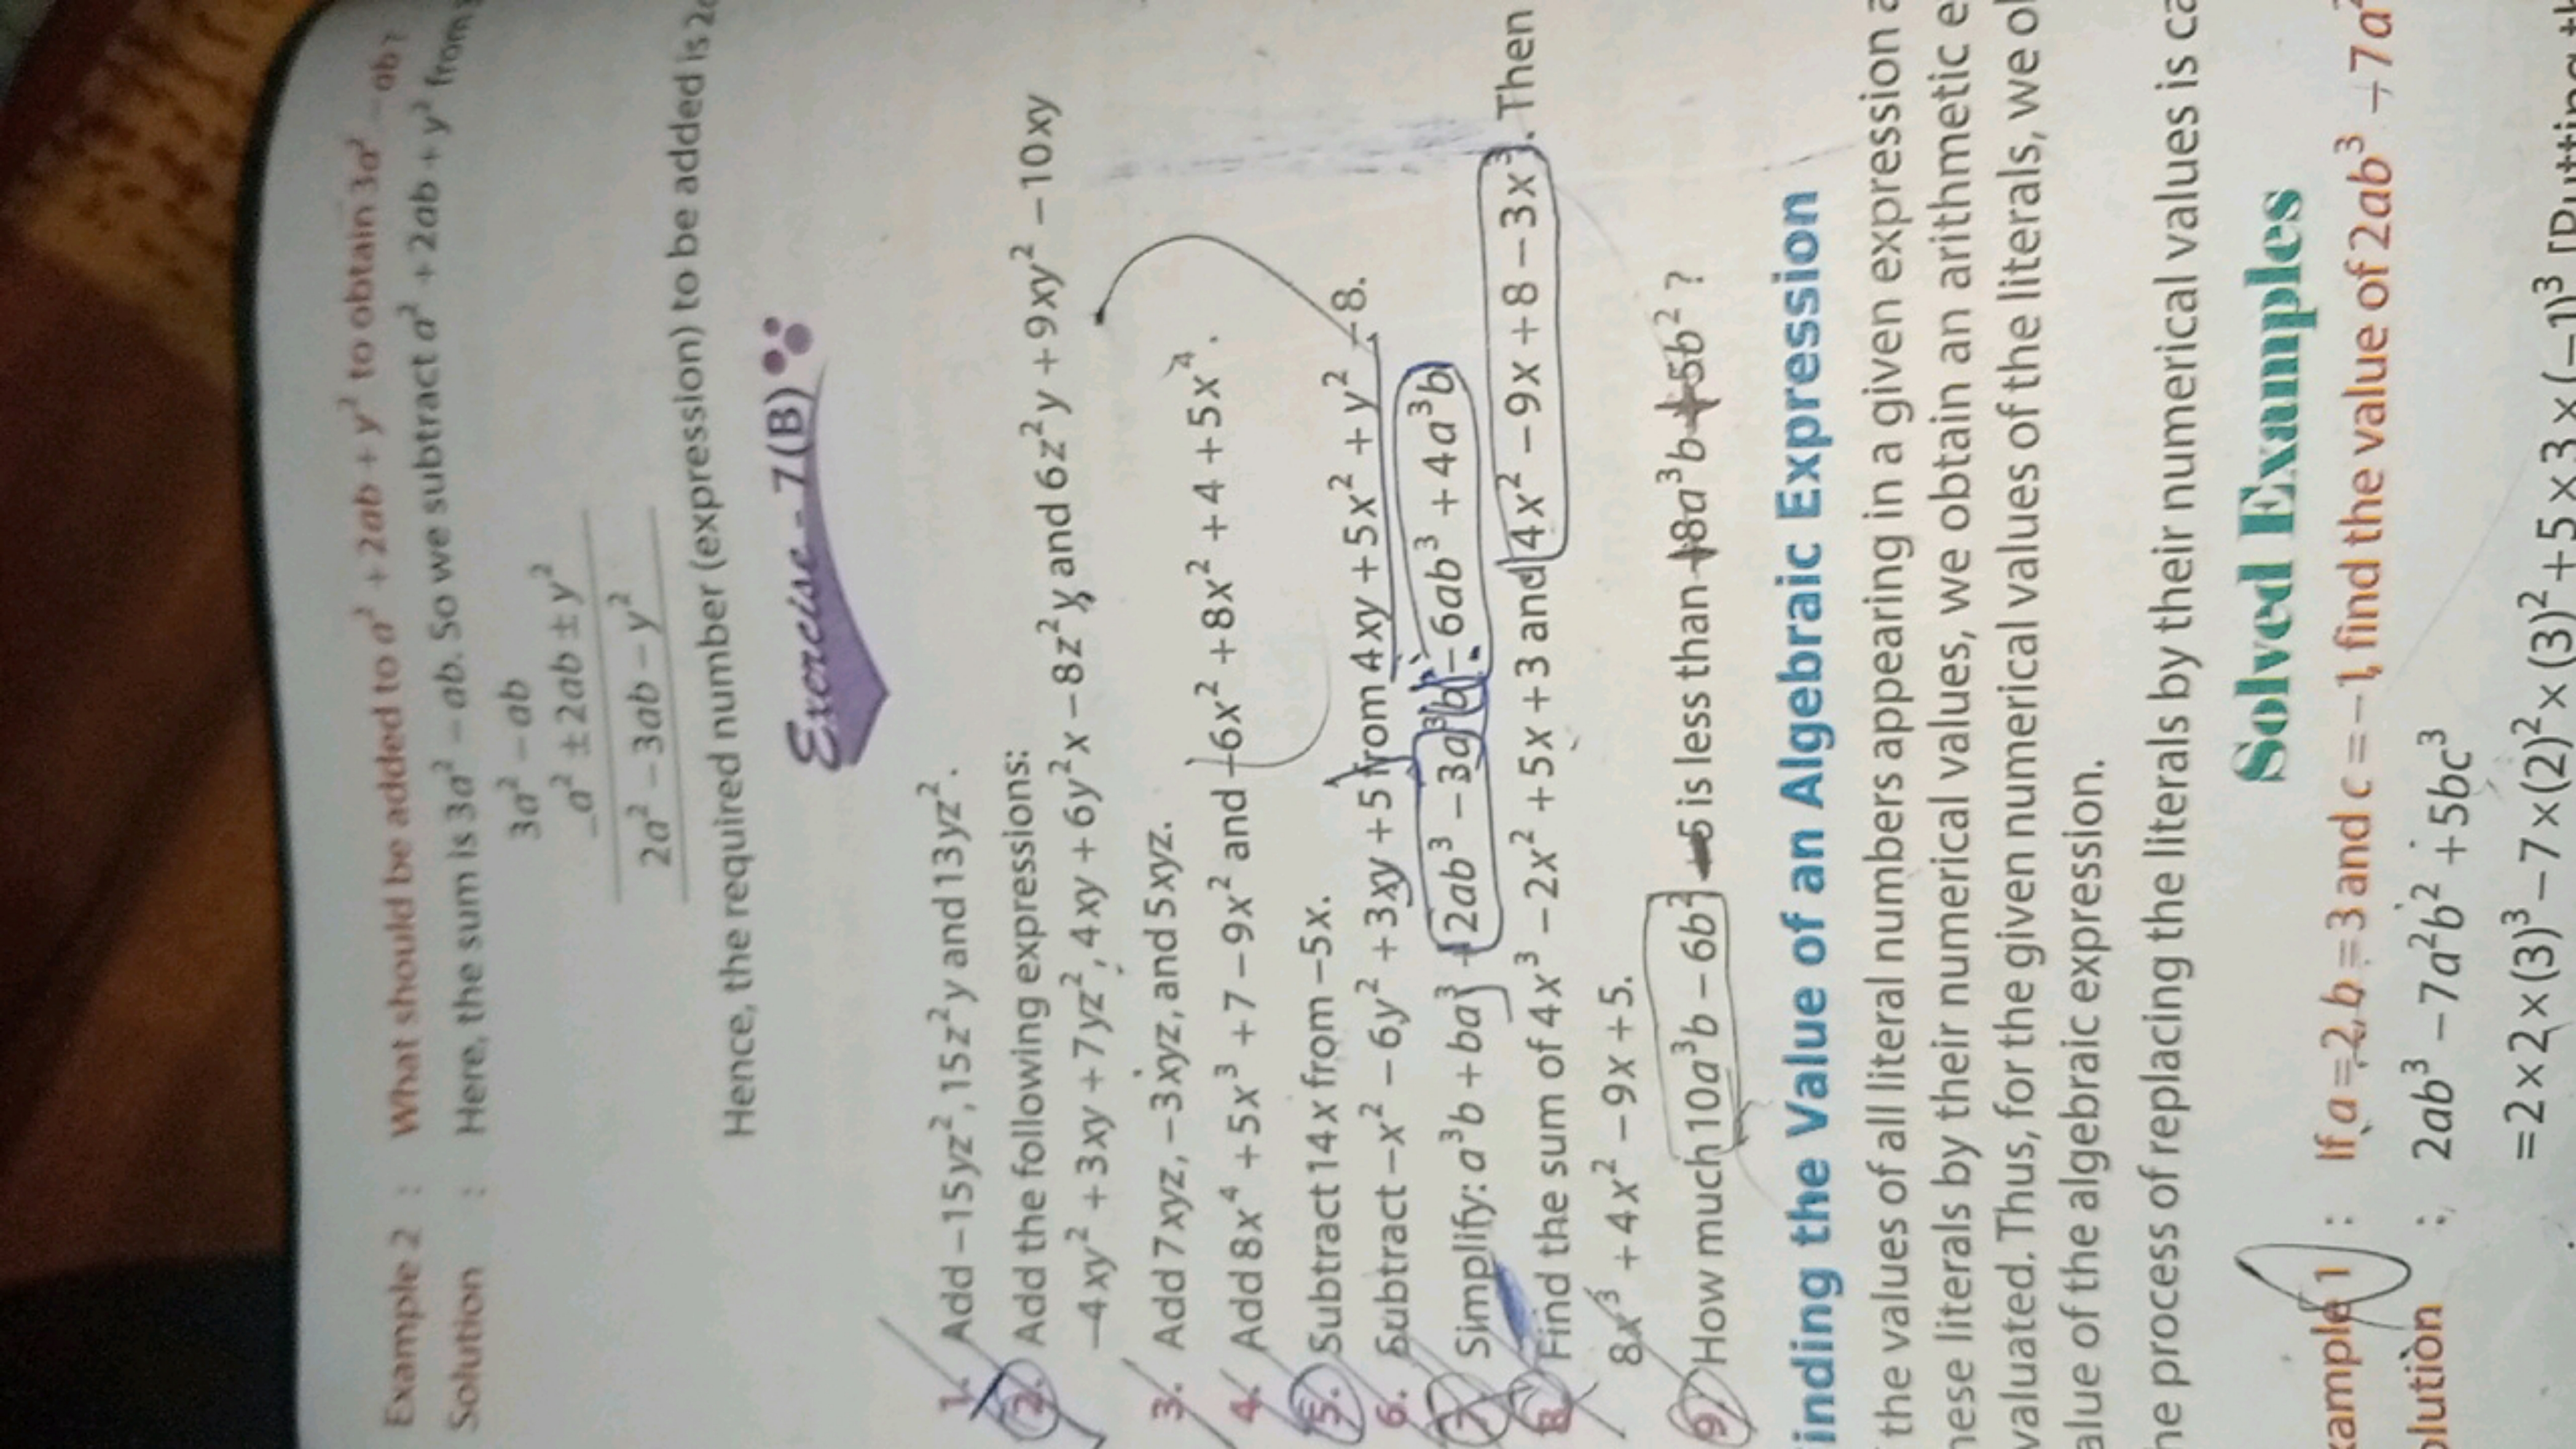 Example 2 : What should be added to a² + 2ab + y² to obtain 3a² – ab?
Solution : Here, the sum is 3a² – ab. So we subtract a² + 2ab + y² from
3a² – ab
–a² ± 2ab ± y²
2a² – 3ab – y²
Hence, the required number (expression) to be added is
Exercise - 7(B)
1. Add –15yz², 15z²y and 13yz².
2. Add the following expressions:
–4xy² + 3xy + 7yz², 4xy + 6y²x – 8z²y, and 6z²y + 9xy² – 10xy
3. Add 7xyz, –3xyz, and 5xyz.
4. Add 8x⁴ + 5x³ + 7 – 9x² and –6x² + 8x² + 4 + 5x⁴.
5. Subtract 14x from –5x.
6. Subtract –x² – 6y² + 3xy + 5 from 4xy + 5x² + y² – 8.
7. Simplify: a³b + ba³ + 2ab³ – 3a³b – 6ab³ + 4a³b
8. Find the sum of 4x³ – 2x² + 5x + 3 and 4x² – 9x + 8 – 3x³. Then
8x³ + 4x² – 9x + 5.
9. How much 10a³b – 6b² is less than 8a³b + 5b²?
inding the Value of an Algebraic Expression
the values of all literal numbers appearing in a given expression
hese literals by their numerical values, we obtain an arithmetic
valuated. Thus, for the given numerical values of the literals, we
alue of the algebraic expression.
he process of replacing the literals by their numerical values is
Solved Examples
xample 1 : If a = 2, b = 3 and c = –1, find the value of 2ab³ – 7a²
olution : 2ab³ – 7a²b² + 5bc³
= 2 × 2 × (3)³ – 7 × (2)² × (3)² + 5 × 3 × (–1)³ [Putting